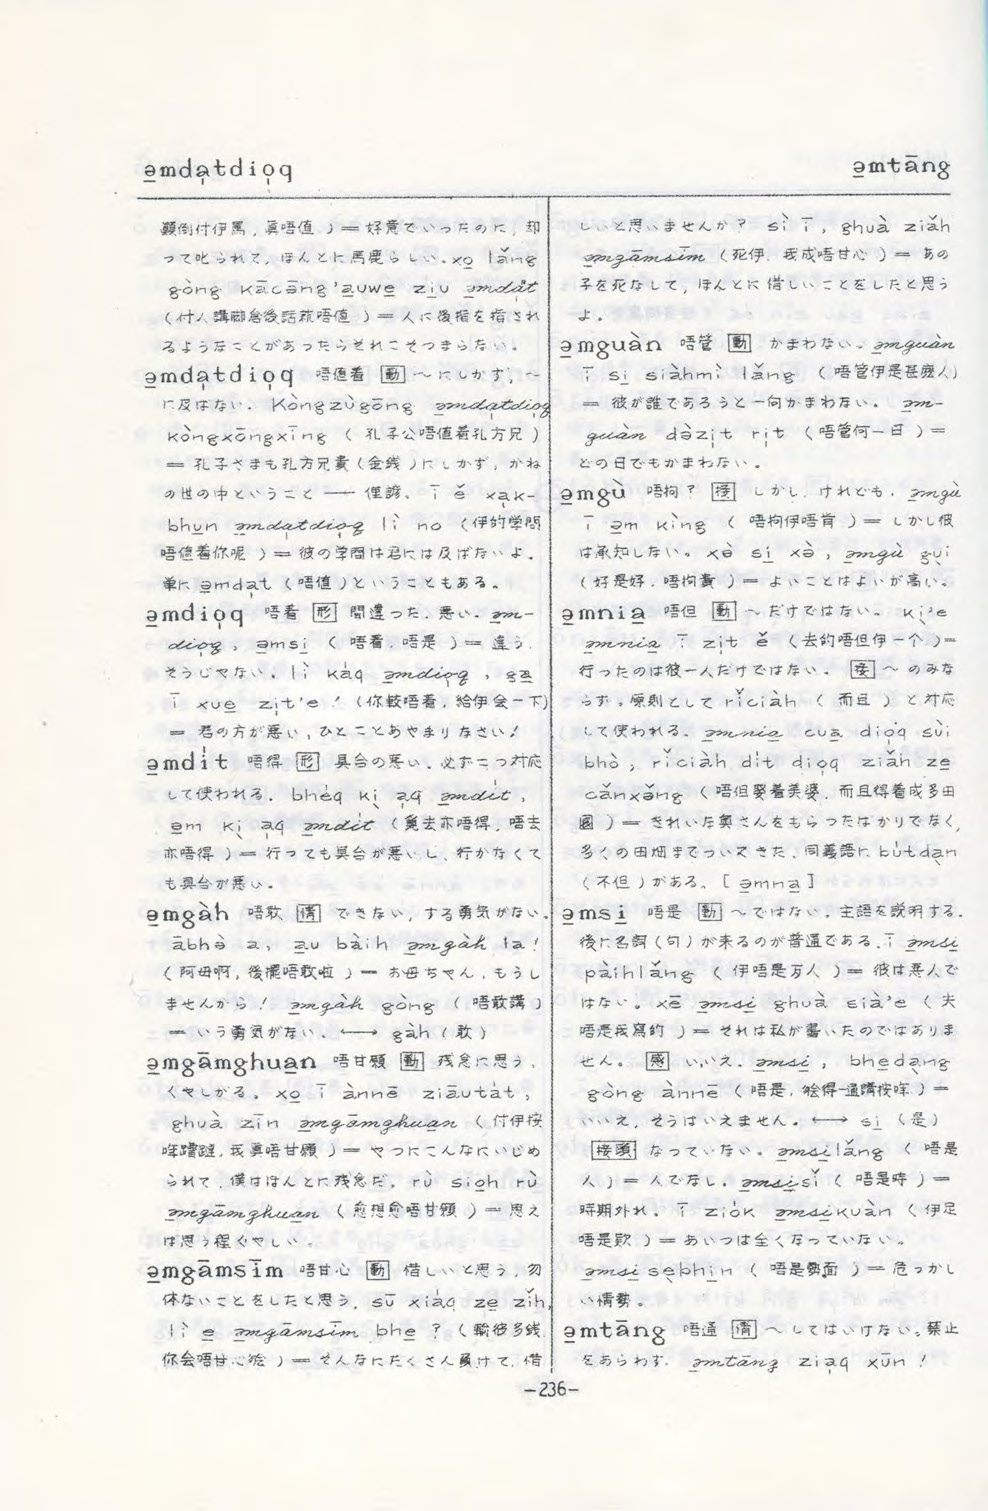 əmdạtdiọq
əmtāng
顛倒付伊罵,真唔值 )= 好意でいったのに,却
って叱られて,ほんとに馬鹿らしい.xo lǎng
gòng kācāng'auwe ziu əmdạt
(付人講脚倉後話就唔值 )= 人に後指を指され
るようなことがあったらそれこそつまらない.
əmdạtdiọq 唔値着 [動] ~にしかず,~
に及ばない. Kòngzùgōng əmdạtdiọq
kòngxōngxīng ( 孔子公唔値着孔方兄 )
= 孔子さまも孔方兄貴(金銭)にしかず,かね
の世の中ということ —— 俚諺. ī ě xạk-
bhun əmdạtdiọq lì no (伊的学問
唔値着你呢 )= 彼の学問は君には及ばないよ.
単に əmdạt (唔値)ということもある.
əmdiọq 唔着 [形] 間違った.悪い. əm-
diọq , əmsi ( 唔着.唔是 )= 違う.
そうじゃない. lì kạq əmdiọq , ga
ī xue zịt'e ! (你較唔着,給伊会一下)
= 君の方が悪い,ひとことあやまりなさい!
əmdit 唔得 [形] 具合の悪い.必ず二つ対応
して使われる. bhéq kị aq əmdit ,
əm kị aq əmdit (覓去亦唔得,唔去
亦唔得 )= 行っても具合が悪いし,行かなくて
も具合が悪い.
əmgàh 唔敢 [情] できない,する勇気がない.
ābhə a, au bàih əmgàh la!
(阿母啊,後擺唔敢啦 )= お母ちゃん,もうし
ませんから! əmgàh gòng ( 唔敢講 )
= いう勇気がない. ←→ gàh (敢)
əmgāmghuan 唔甘願 [動] 残念に思う.
くやしがる. xo ī ànnē ziāutat ,
ghuà zīn əmgāmghuan ( 付伊按
哖蹧躂,我真唔甘願 )= やつにこんなにいじめ
られて,僕はほんとに残念だ. rù siọh rù
əmgāmghuan ( 愈想愈唔甘願 )= 思え
ば思う程くやしい.
əmgāmsīm 唔甘心 [動] 惜しいと思う,勿
体ないことをしたと思う. sū xiáq ze zǐh,
lì e əmgāmsīm bhe ? ( 輸彼多銭,
你会唔甘心 )= そんなにたくさん負けて,惜
しいと思いませんか? sì ī , ghuà ziǎh
əmgāmsīm (死伊,我成唔甘心 )= あの
子を死なして,ほんとに惜しいことをしたと思う
よ.
əmguàn 唔管 [動] かまわない. əmguàn
ī si siàhmì lǎng ( 唔管伊是甚麽人)
= 彼が誰であろうと一向かまわない. əm-
guàn dəzịt rịt (唔管何一日 )=
どの日でもかまわない.
əmgù 唔拘? [接] しかし,けれども. əmgù
ī əm kìng ( 唔拘伊唔肯 )= しかし彼
は承知しない. xə̀ si xə̀ , əmgù guị
(好是好.唔拘貴 )= よいことはよいが高い.
əmnia 唔但 [動] ~だけではない. kị'e
əmnia ī zịt ě (去的唔但伊一个 )=
行ったのは彼一人だけではない. [接] ~ のみな
らず.原則として rǐciàh ( 而且 ) と対応
して使われる. əmnia cua diọq sùi
bhò , rǐciàh dit diọq ziǎh ze
cǎnxǎng (唔但娶着美婆.而且得着成多田
園 )= きれいな奥さんをもらったばかりでなく,
多くの田畑までついてきた.同義語に bútdạn
(不但)がある. [ əmna ]
əmsi 唔是 [動] ~ではない.主語を説明する.
後に名詞(句)が来るのが普通である. ī əmsi
pàihlǎng ( 伊唔是歹人 )= 彼は悪人で
はない. xē əmsi ghuà sià'e (夫
唔是我寫的 )= それは私が書いたのではありま
せん. [感] いいえ. əmsi , bhedạng
gòng ànnē ( 唔是,𣍐得通講按哖 )=
いいえ,そうはいえません. ←→ si (是)
[接頭] なっていない. əmsilǎng ( 唔是
人)= 人でなし. əmsisǐ ( 唔是時 )=
時期外れ. ī ziók əmsikuàn (伊足
唔是款 )= あいつは全くなっていない.
əmsi sebhin ( 唔是勢面 )= 危っかし
い情勢.
əmtāng 唔通 [情] ~してはいけない.禁止
をあらわす. əmtāng ziạq xūn !
-236-